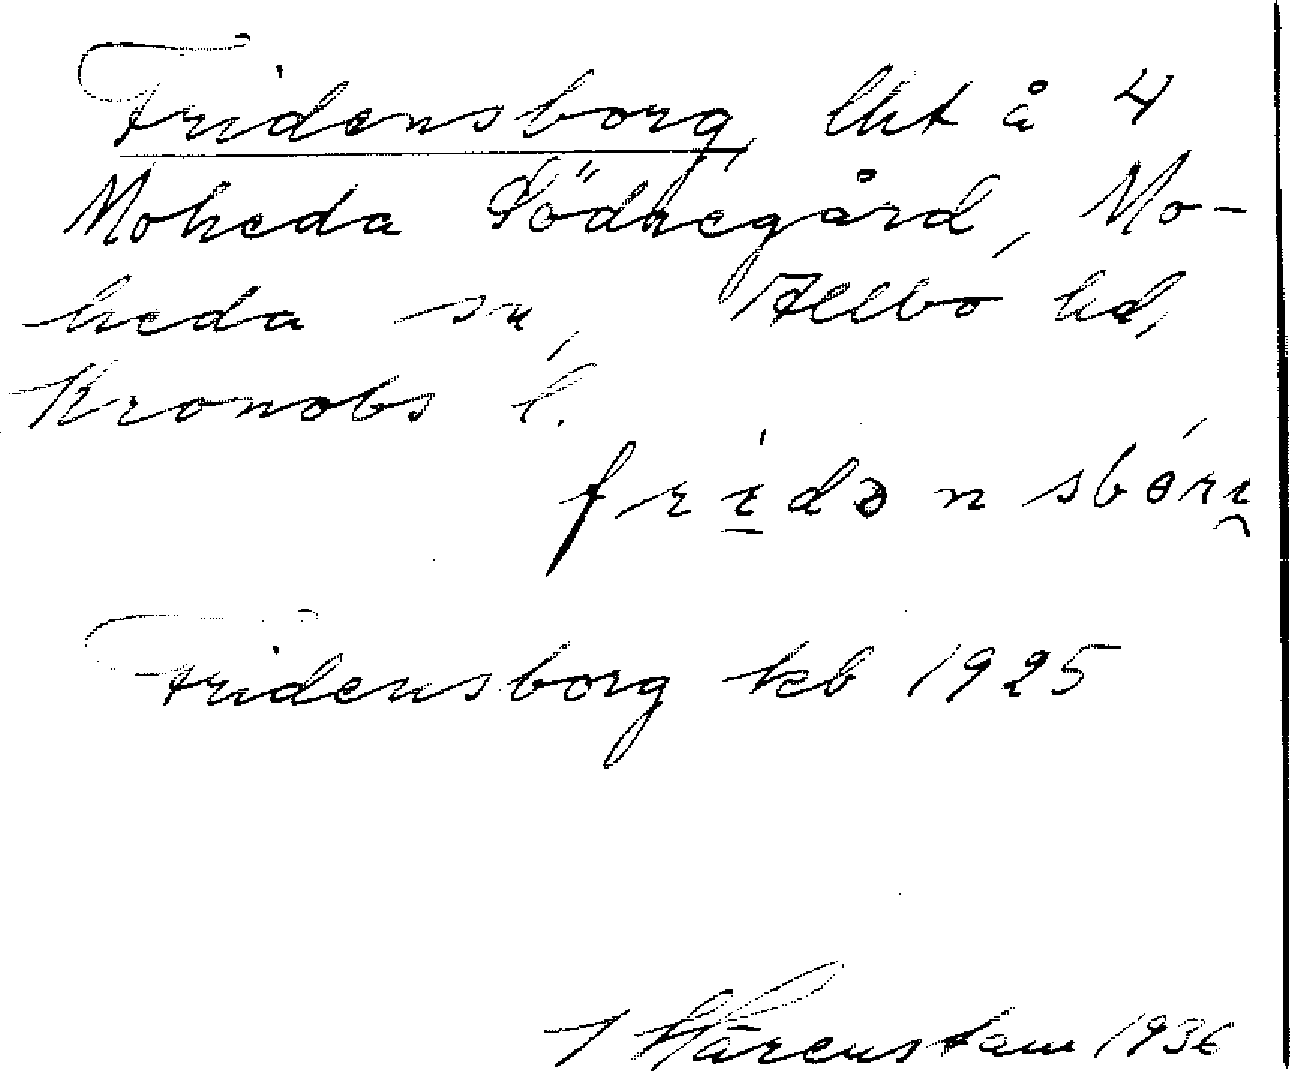 Fridensborg, lht å 4
Moheda Södregård, Mo-
heda sn, Allbo hd,
Kronobs l.
fridənsbór
Fridensborg kb 1925
Härenstam 1936